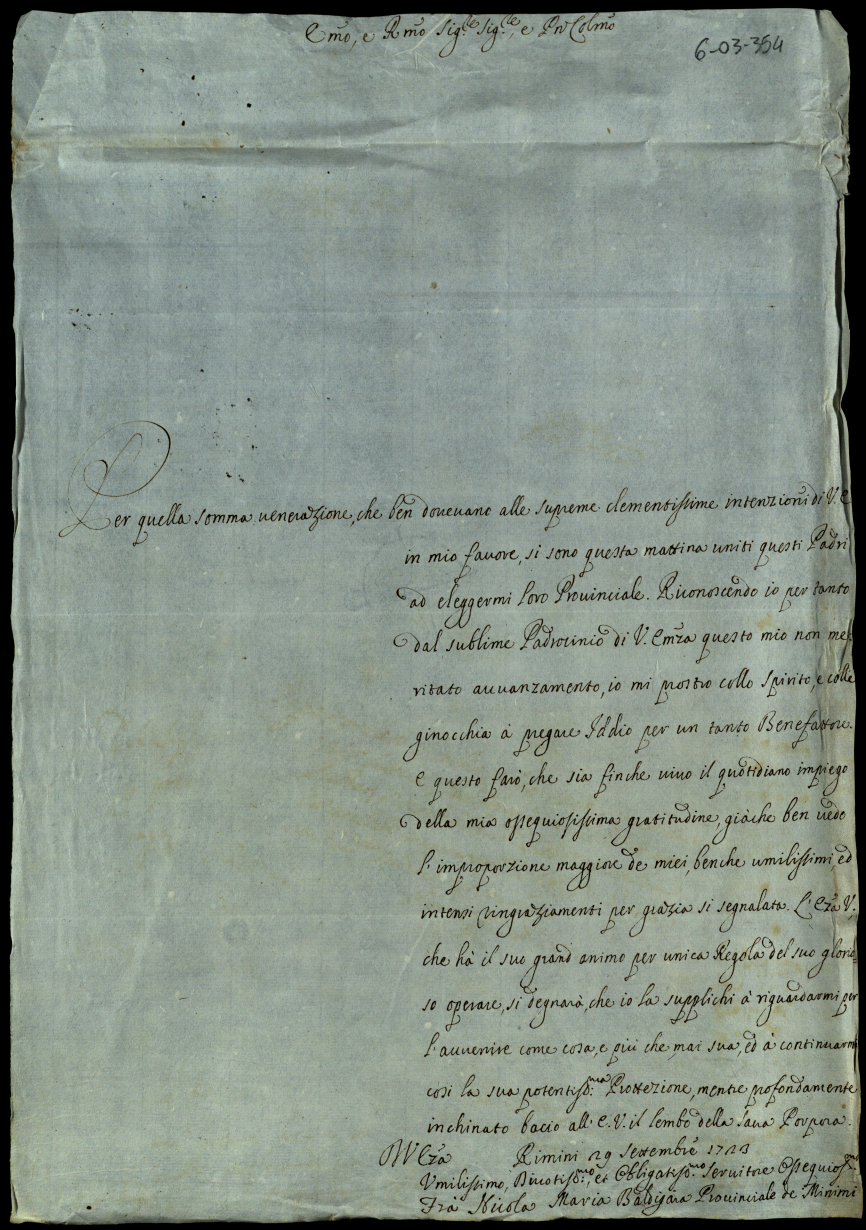 Emo, e Rmo Sig.re Sig.re, e Pn Colmo
6-03-354
Per quella somma venerazione, che ben doveuano alle supreme clementissime intenzioni di V. E
in mio fauore, si sono questa mattina uniti questi Padri
ad eleggermi loro Prouinciale. Riconoscendo io per tanto
dal sublime Padrocinio di V. Emza questo mio non me-
ritato auuanzamento, io mi prostro collo spirito, e colle
ginocchia à pregare Iddio per un tanto Benefattore.
E questo farò, che sia finche uiuo il quotidiano impiego
della mia ossequiosissima gratitudine, giàche ben uedo
l'improporzione maggiore de miei, benche umilissimi, ed
intensi ringraziamenti per grazia si segnalata. L'Eza V.,
che hà il suo grand animo per unica Regola del suo glorio-
so operare, si degnarà, che io la supplichi à riguardarmi per
l'auuenire come cosa, e più che mai sua, ed à continuarmi
così la sua potentiss:ma Prottezione, mentre profondamente
inchinato bacio all' E. V. il lembo della Sacra Porpora.
Rimini 29 Settembre
Umilissimo, Diuotiss:mo, et Obligatiss:mo Seruitore Ossequios:mo
Frà Nicola Maria Baldigara Prouinciale de Minimi